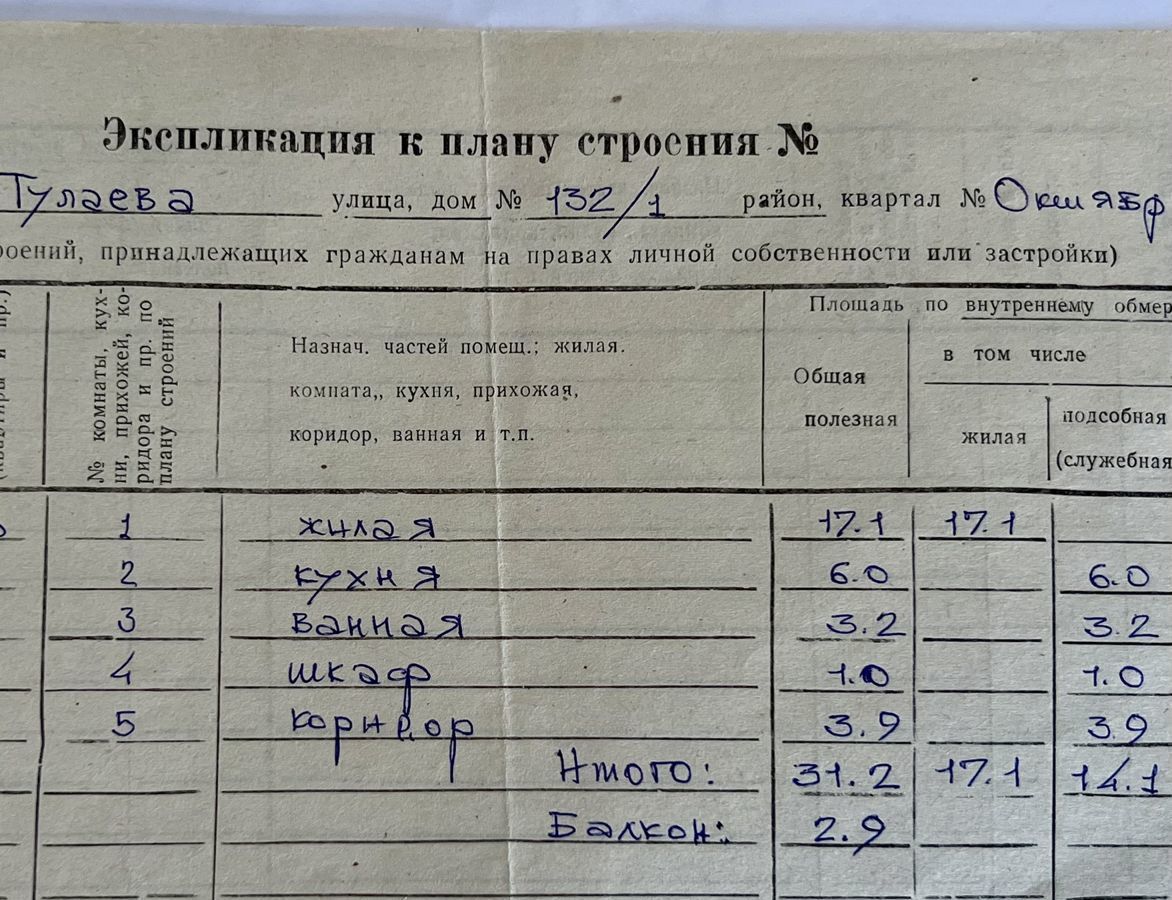 Экспликация к плану строения №
Тулаева улица, дом № 132/1 район, квартал № Октябр
роений, принадлежащих гражданам на правах личной собственности или застройки)
№ комнаты, кух-
ни, прихожей, ко-
ридора и пр. по
плану строений
Назнач. частей помещ.; жилая.
комната,, кухня, прихожая,
коридор, ванная и т.п.
Площадь по внутреннему обмер
Общая
полезная
в том числе
жилая
подсобная
(служебная
1 жилая 17.1 17.1
2 кухня 6.0 6.0
3 ванная 3.2 3.2
4 шкаф 1.0 1.0
5 коридор 3.9 3.9
Итого: 31.2 17.1 14.1
Балкон: 2.9